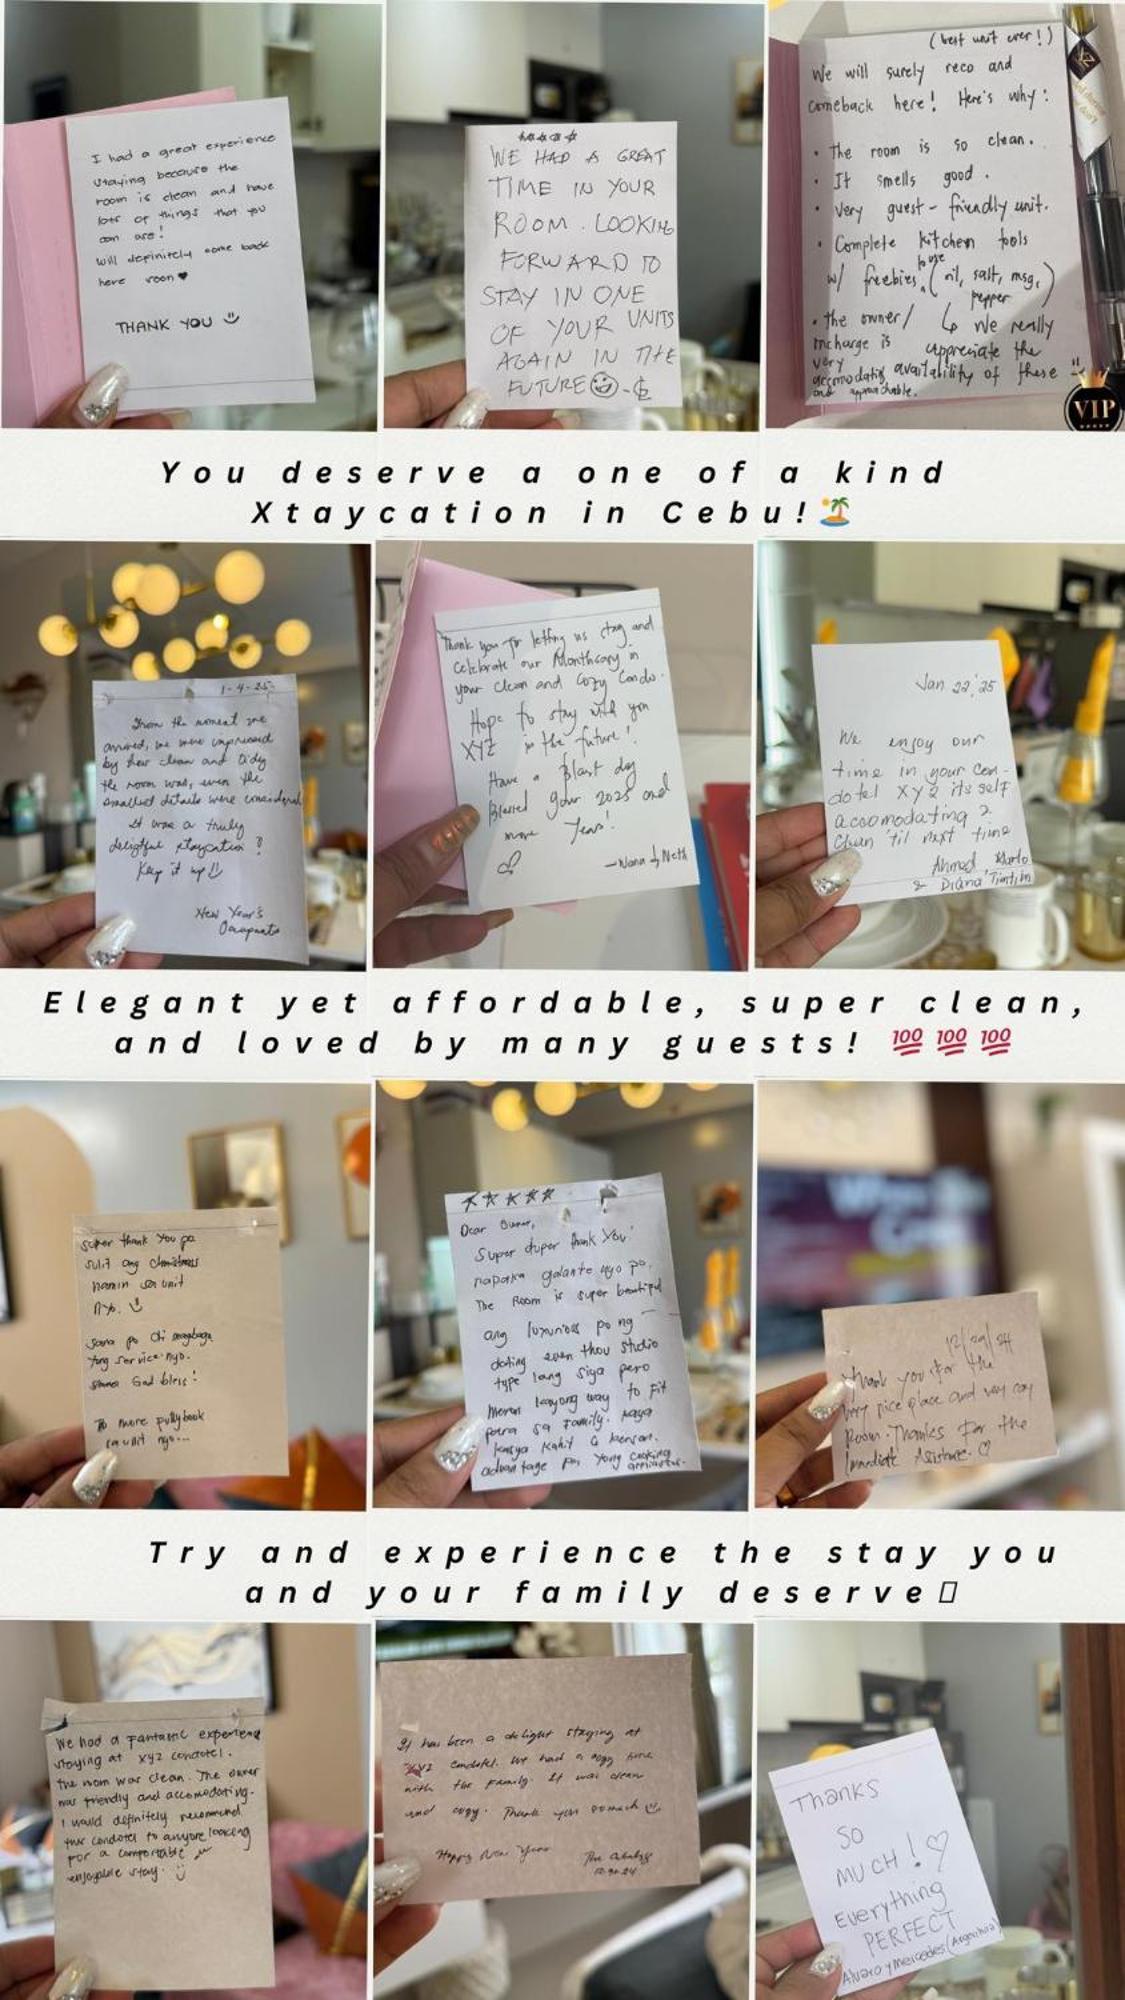 I had a great experience
staying because the
room is clean and have
lots of things that you
can use!
will definitely come back
here soon♥
THANK YOU
WE HAD A GREAT
TIME IN YOUR
ROOM. LOOKING
FORWARD TO
STAY IN ONE
OF YOUR UNITS
AGAIN IN THE
FUTURE
(best unit ever!)
We will surely reco and
comeback here! Here's why:
• The room is so clean.
• It smells good.
• Very guest-friendly unit.
• Complete kitchen tools
w/ freebies (oil, salt, msg, pepper)
↳ We really
appreciate the
availability of these
• the owner/
incharge is
very
accomodating
and approachable.
VIP
You deserve a one of a kind
Xtaycation in Cebu!🏝️
1-4-25
From the moment we
arrived, we were impressed
by how clean and tidy
the room was, even the
smallest details were considered
It was a truly
delightful staycation
Keep it up
New Year's
Occupants
Thank you for letting us stay and
Celebrate our Monthsary in
your Clean and Cozy Condo.
Hope to stay with you
XYZ in the future!
Have a Blast day
Blessed your 2025 and
more Years!
Jan 22, '25
We enjoy our
time in your con-
dotel XYZ its self
accomodating &
Clean 'til next time
Ahmed
& Diana
Elegant yet affordable, super clean,
and loved by many guests! 💯💯💯
super thank you po
sulit ang christmas
namin sa unit
nyo.
Sana po di magbago
yong service nyo.
God bless!
To more fully book
sa unit nyo...
Dear Owner,
Super duper thank You!
napaka galante nyo po.
The Room is super beautiful
ang luxurious po ng
dating even thou studio
type lang siya pero
meron kayong way to fit
para sa family. kaya
kasya kahit 6 person.
advantage pa yong cooking
12/29/24
Thank you for the
very nice place and very cozy
Room. Thanks for the
Immediate Assistance. ♡
Try and experience the stay you
and your family deserve
We had a fantastic experience
staying at XYZ condotel.
the room was clean. The owner
was friendly and accomodating.
I would definitely recommend
this condotel to anyone looking
for a comfortable
enjoyable stay.
It has been a delight staying at
XYZ Condotel. We had a cozy time
with the family. It was clean
and cozy. Thank you so much
Happy New Year
Thanks
SO
MUCH! ♡
Everything
PERFECT
Alvaro y Mercedes (Argentina)